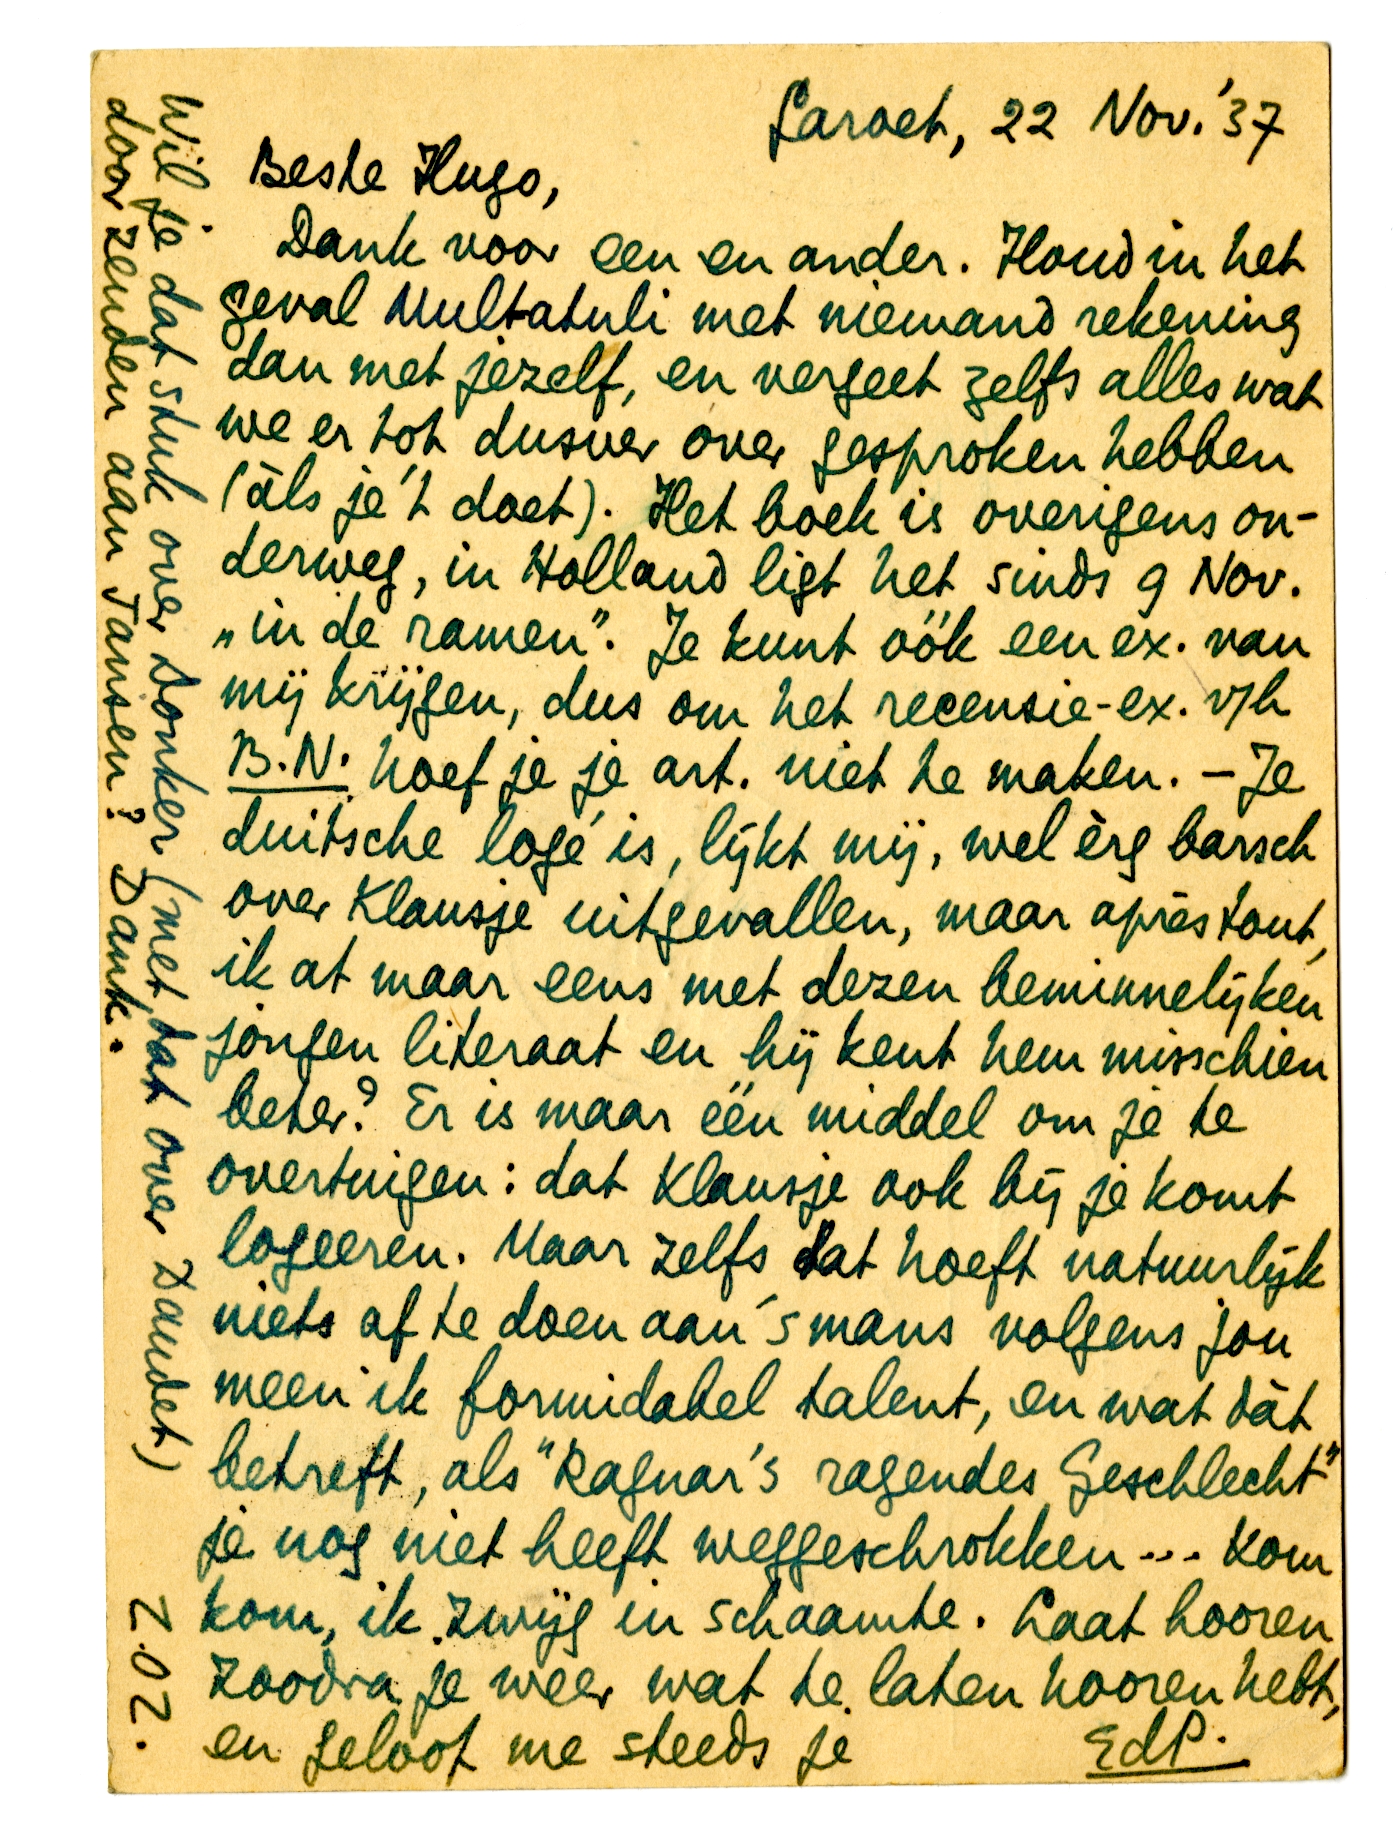 Laroet, 22 Nov. '37
Beste Hugo,
Dank voor een en ander. Houd in het
geval Multatuli met niemand rekening
dan met jezelf, en vergeet zelfs alles wat
we er tot dusver over gesproken hebben
(àls je 't doet). Het boek is overigens on-
derweg, in Holland ligt het sinds 9 Nov.
„in de ramen”. Je kunt oók een ex. van
mij krijgen, dus om het recensie-ex. v/h
B.N. hoef je je art. niet te maken. — Je
duitsche logé is, lijkt mij, wel èrg barsch
over Klausje uitgevallen, maar après tout,
ik at maar eens met dezen beminnelijken
jongen literaat en hij kent hem misschien
beter? Er is maar één middel om je te
overtuigen: dat Klausje ook bij je komt
logeeren. Maar zelfs dat hoeft natuurlijk
niets af te doen aan 's mans volgens jou
meen ik formidabel talent, en wat dàt
betreft, als "Ragnar's ragendes Geschlecht"
je nog niet heeft weggeschrokken... Kom
kom, ik zwijg in schaamte. Laat hooren
zoodra je weer wat te laten hooren hebt,
en geloof me steeds je EdP.
Wil je dat stuk over Donker (met dat over Daudet)
doorzenden aan Jansen? Dank.
Z.O.Z.